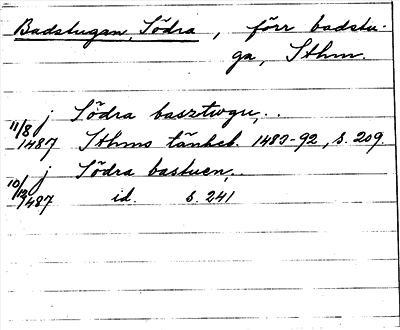 Badstugan, Södra, förr badstu-
ga, Sthm.
11/8 1487 j Södra basztwgu,..
Sthms tänkeb. 1483-92, s. 209.
10/12 1487 j Södra bastuen,..
id. s. 241